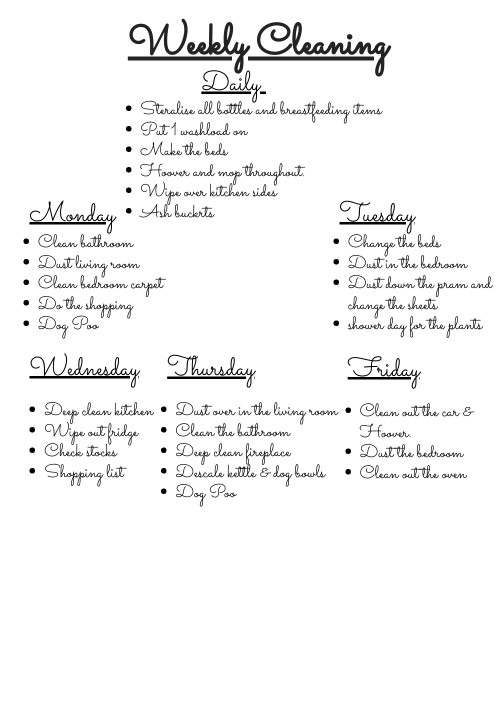 Weekly Cleaning
Daily
Steralise all bottles and breastfeeding items
Put 1 washload on
Make the beds
Hoover and mop throughout.
Wipe over kitchen sides
Ash buckerts
Monday
Clean bathroom
Dust living room
Clean bedroom carpet
Do the shopping
Dog Poo
Tuesday
Change the beds
Dust in the bedroom
Dust down the pram and
change the sheets
shower day for the plants
Wednesday
Deep clean kitchen
Wipe out fridge
Check stocks
Shopping list
Thursday
Dust over in the living room
Clean the bathroom
Deep clean fireplace
Descale kettle & dog bowls
Dog Poo
Friday
Clean out the car &
Hoover.
Dust the bedroom
Clean out the oven